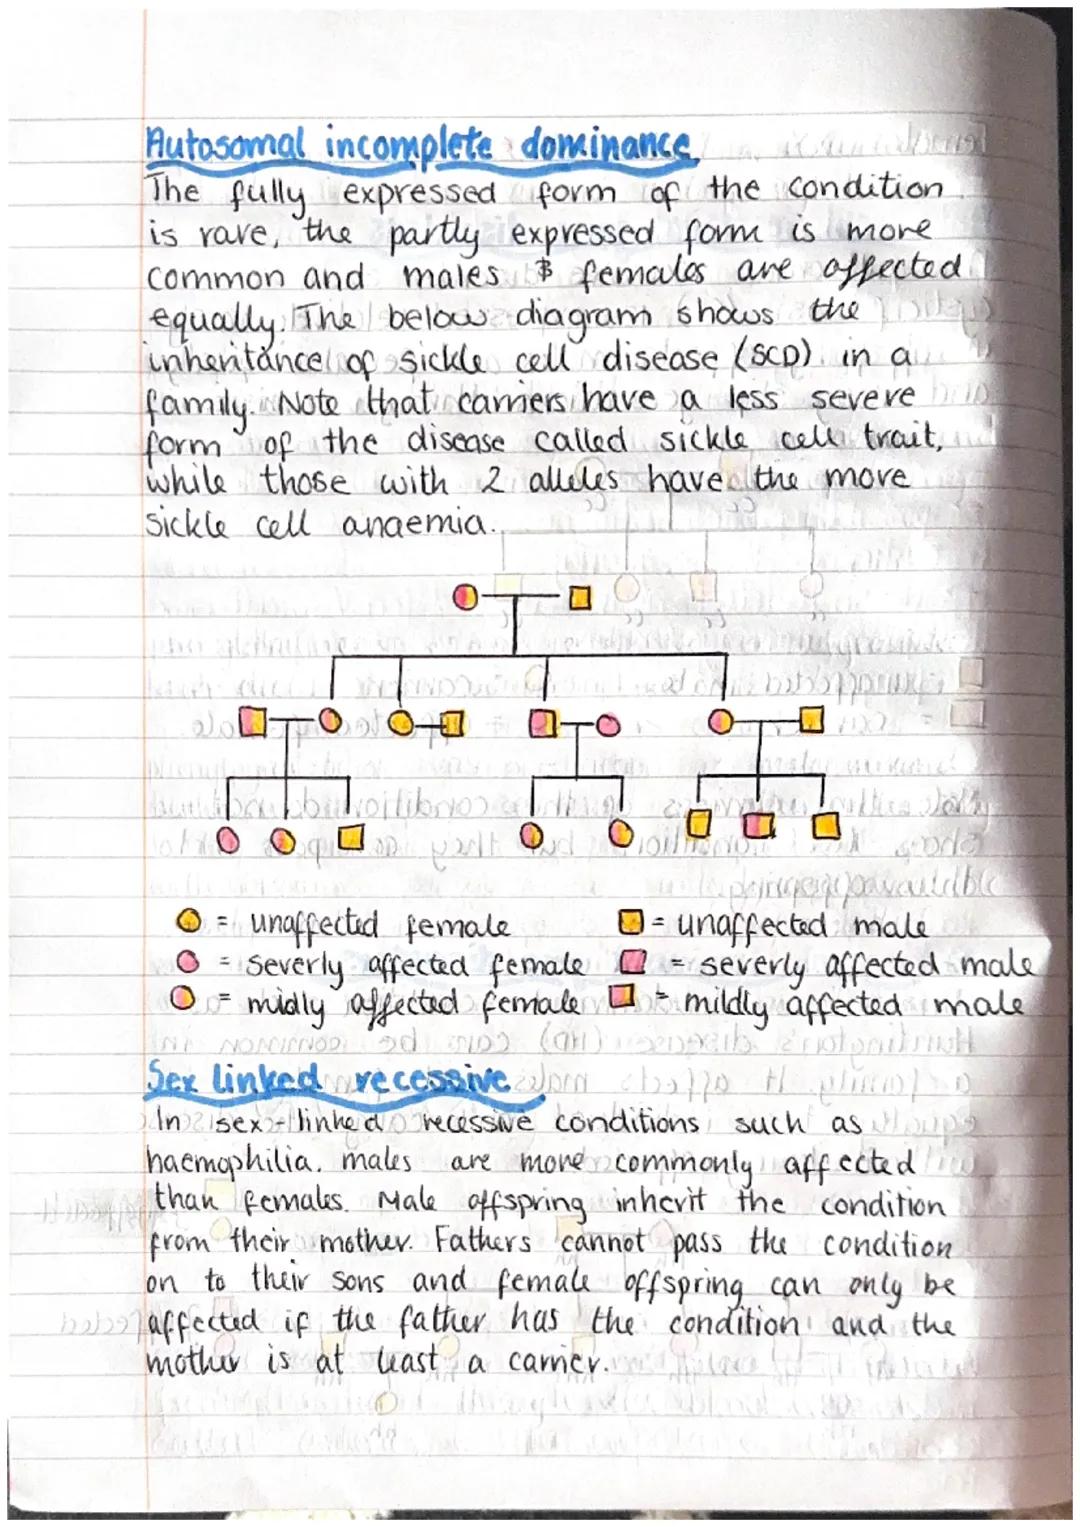 Autosomal incomplete dominance
The fully expressed form of the condition
is rare, the partly expressed form is more
common and males & females are affected
equally. The below diagram shows the
inheritance of sickle cell disease (SCD) in a
family. Note that carriers have a less severe
form of the disease called sickle cell trait,
while those with 2 alleles have the more
sickle cell anaemia.
= unaffected female
= unaffected male
= severly affected female
= severly affected male
= midly affected female
= mildly affected male
Sex linked recessive
In sex-linked recessive conditions such as
haemophilia, males are more commonly affected
than females. Male offspring inherit the condition
from their mother. Fathers cannot pass the condition
on to their sons and female offspring can only be
affected if the father has the condition and the
mother is at least a carrier.